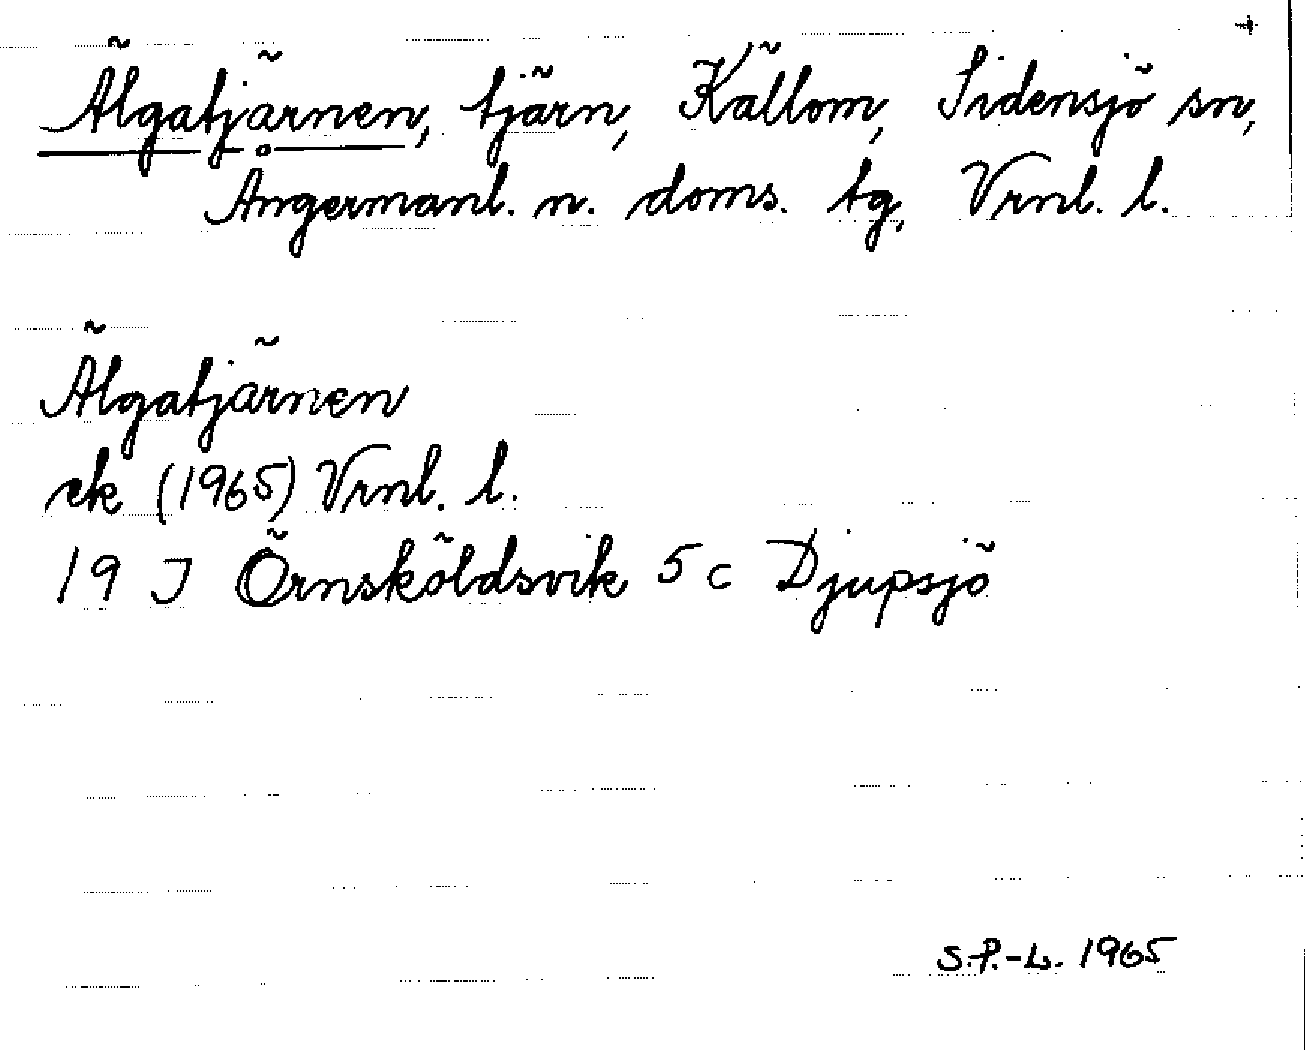 Älgatjärnen, tjärn, Källom, Sidensjö sn,
Ångermanl. n. doms. tg, Vrnl. l.
Älgatjärnen
ek (1965) Vrnl. l.
19 J Örnsköldsvik 5 c Djupsjö
S.P.-L. 1965